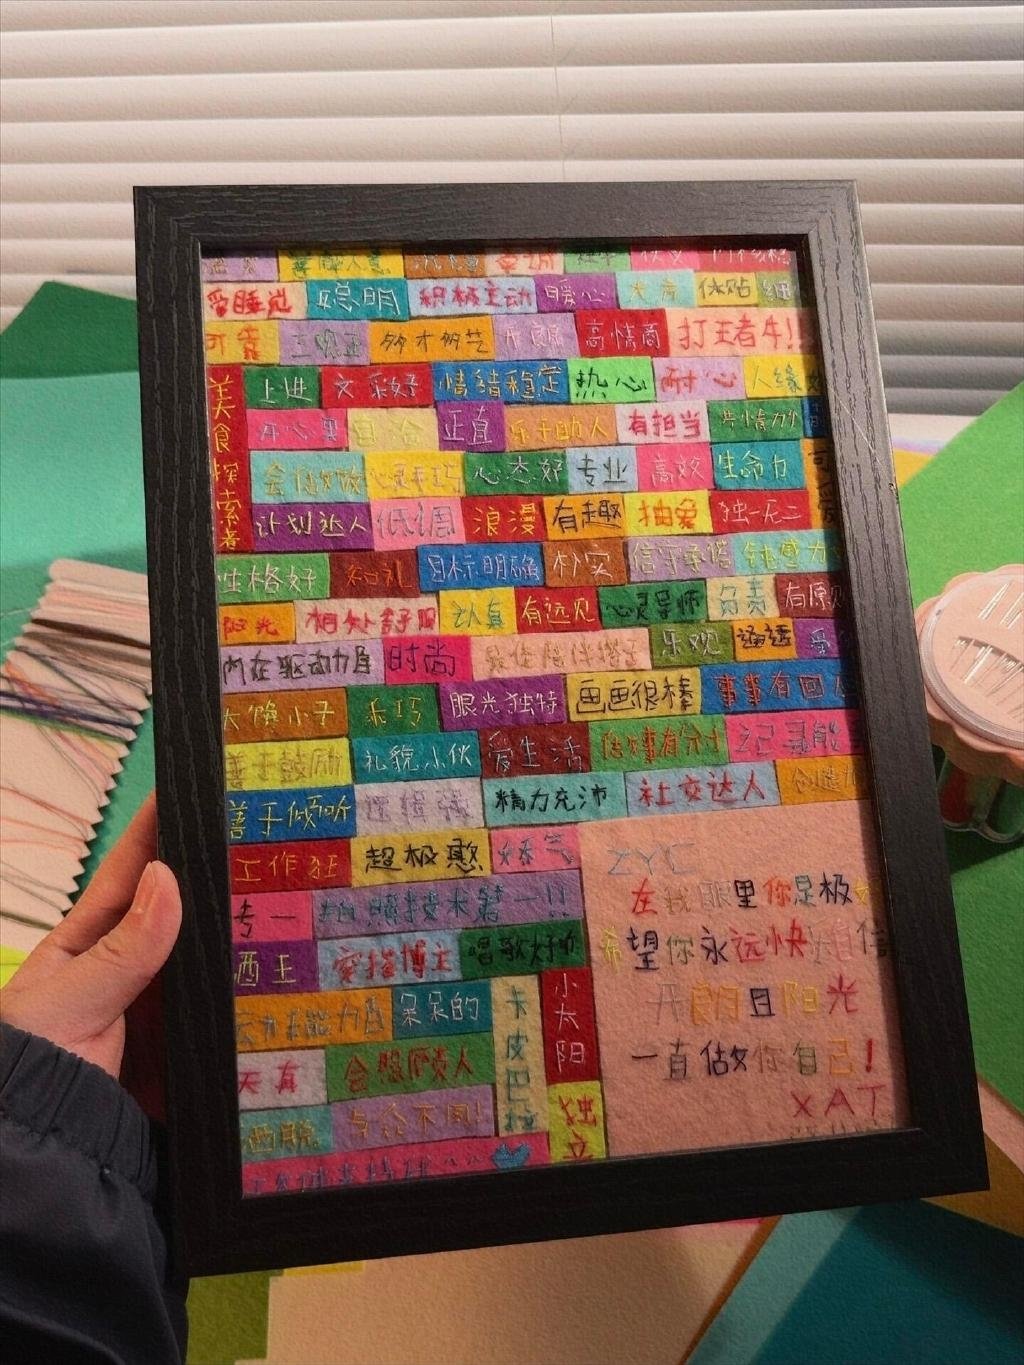 善解人意
爱睡觉 聪明 积极主动 暖心 大方 体贴
可靠 三观正 多才多艺 开朗 高情商 打王者牛!!
美食探索者
上进 文彩好 情绪稳定 热心 耐心 人缘
开心果 自洽 正直 乐于助人 有担当 共情力
会做饭 心灵手巧 心态好 专业 高效 生命力 可爱
计划达人 低调 浪漫 有趣 抽象 独一无二
性格好 知礼 目标明确 朴实 信守承诺 钝感力
阳光 相处舒服 认真 有远见 心灵导师 负责 有原则
内在驱动力 时尚 最佳陪伴搭子 乐观 通透
大馋小子 乖巧 眼光独特 画画很棒 事事有回
善于鼓励 礼貌小伙 爱生活 做事有分寸
善于倾听 逻辑强 精力充沛 社交达人 创造力
工作狂 超极憨 娇气
专一 拍照技术第一!!
酒王 穿搭博主 唱歌好听
呆呆的 卡皮巴拉 小太阳
天真 会照顾人 独立
洒脱 与众不同!
ZYC
在我眼里你是极好
希望你永远快乐自信
开朗且阳光
一直做你自己!
XAT